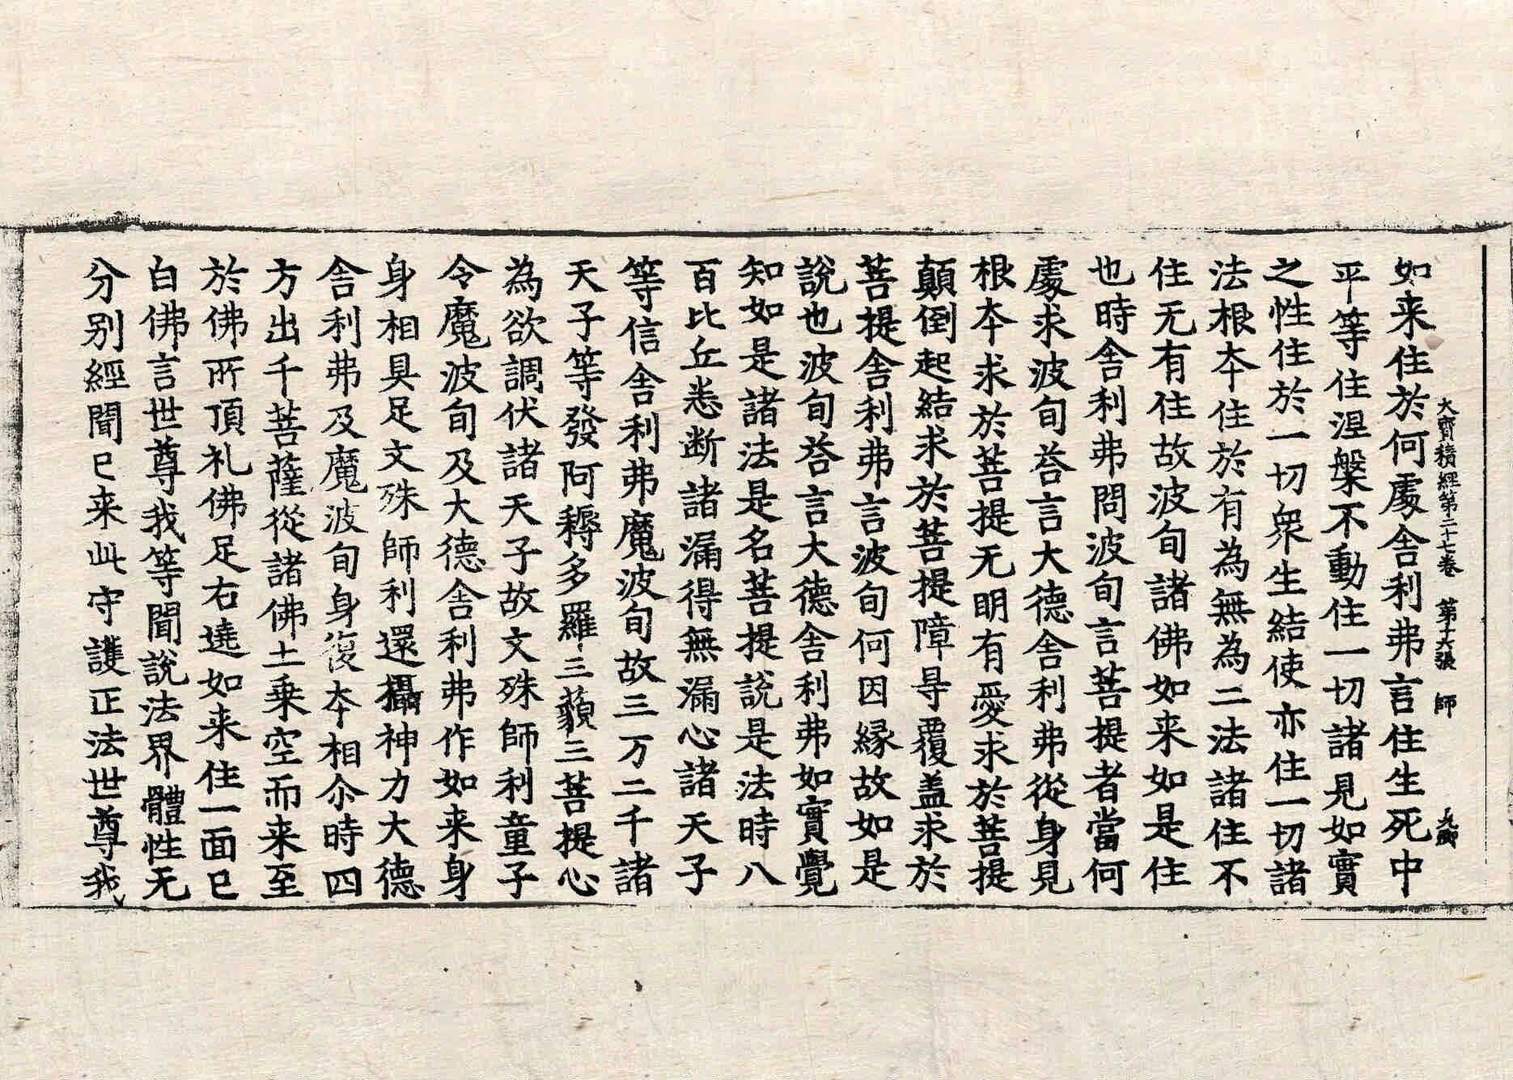 如来住於何處舍利弗言住生死中
大寶積經第二十七卷　第十六張　師
平等住涅槃不動住一切諸見如實
之性住於一切衆生結使亦住一切諸
法根本住於有為無為二法諸住不
住无有住故波旬諸佛如来如是住
也時舍利弗問波旬言菩提者當何
處求波旬荅言大德舍利弗從身見
根本求於菩提无明有愛求於菩提
顛倒起結求於菩提障㝵覆盖求於
菩提舍利弗言波旬何因縁故如是
說也波旬荅言大德舍利弗如實覺
知如是諸法是名菩提說是法時八
百比丘悉断諸漏得無漏心諸天子
等信舍利弗魔波旬故三万二千諸
天子等發阿耨多羅三藐三菩提心
為欲調伏諸天子故文殊師利童子
令魔波旬及大德舍利弗作如来身
身相具足文殊師利還攝神力大德
舍利弗及魔波旬身復本相尒時四
方出千菩薩從諸佛土乗空而来至
於佛所頂礼佛足右遶如来住一面已
白佛言世尊我等聞說法界體性无
分別經聞已来此守護正法世尊我